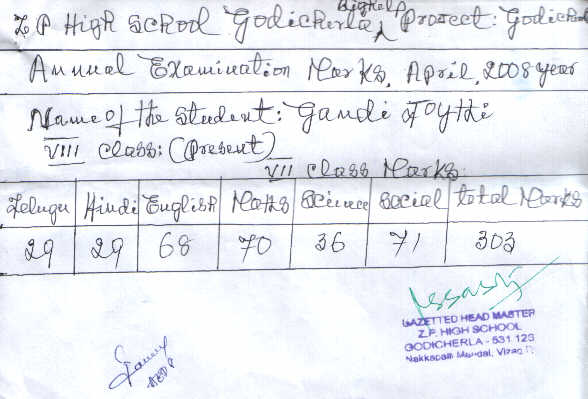 Z P High School Godicherla, BigHelp Project: Godicherl
Annual Examination Marks, April, 2008 year
Name of the Student: Gandi Jyothi
VIII class: (Present)
VII class Marks
Telugu Hindi English Maths Science Social total Marks
29 29 68 70 36 71 303
GAZETTED HEAD MASTER
Z.P. HIGH SCHOOL
GODICHERLA - 531 123
Nakkapalli Mandal, Vizag